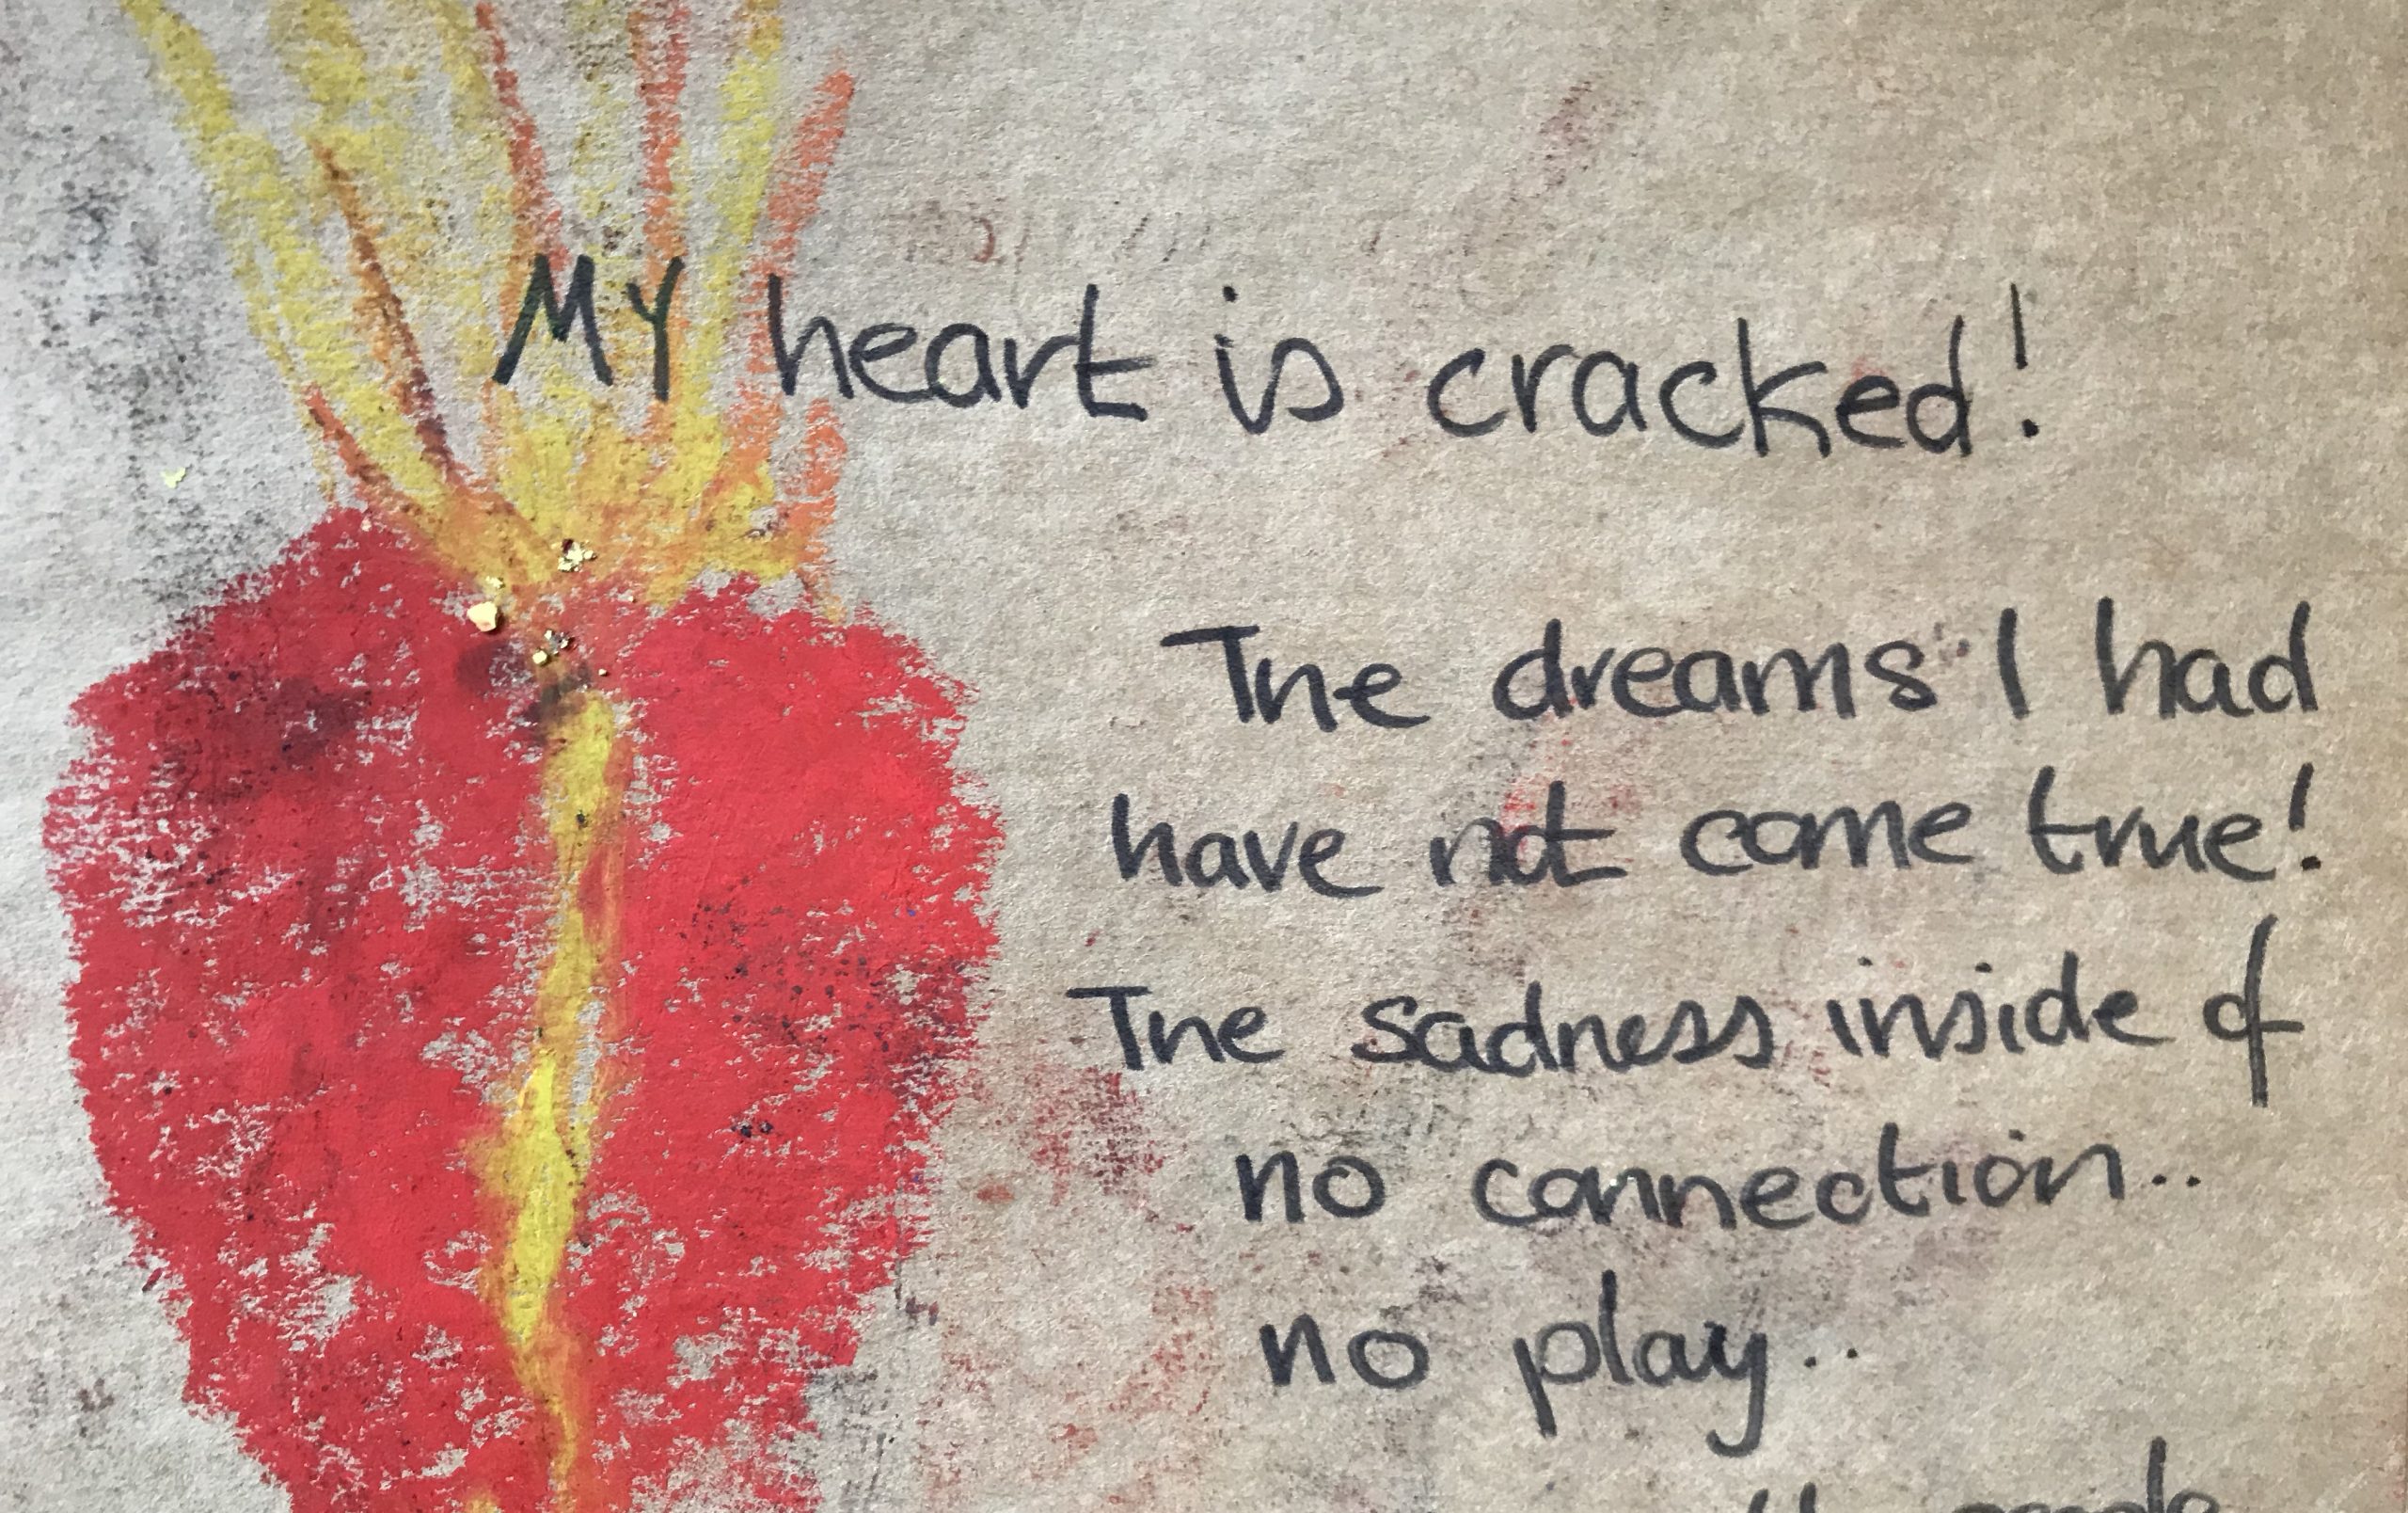 My heart is cracked!
The dreams I had
have not come true!
The sadness inside of
no connection..
no play..